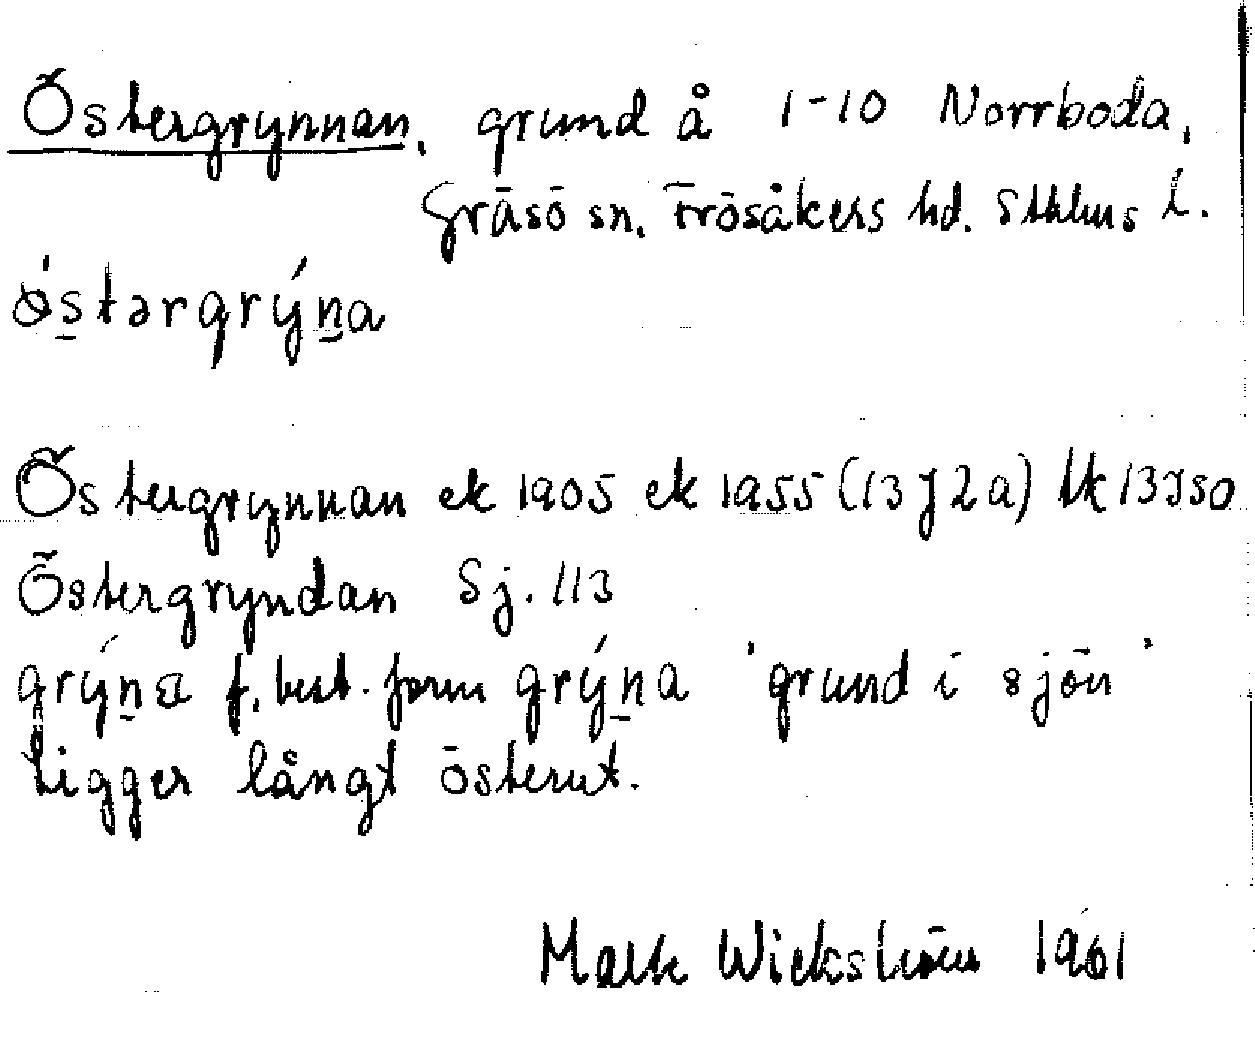 Östergrynnan, grund å 1-10 Norrboda,
Gräsö sn. Frösåkers hd. Sthlms l.
ǿs̱tərgrýṉa
Östergrynnan ek 1905 ek 1955 (13 J 2a) tk 13JSO
Östergryndan Sj. 113
grýṉa f. best. form grýṉa 'grund i sjön'
Ligger långt österut.
Wickström 1961